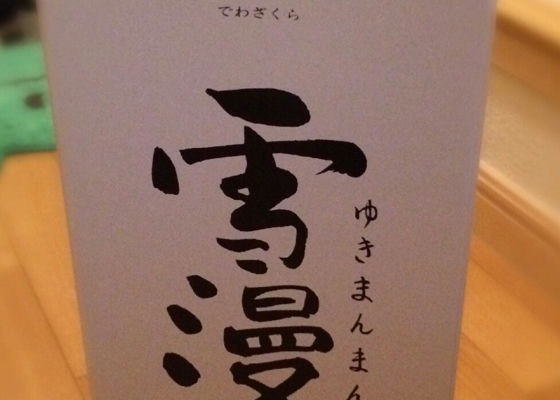 でわざくら
雪漫
ゆきまんまん